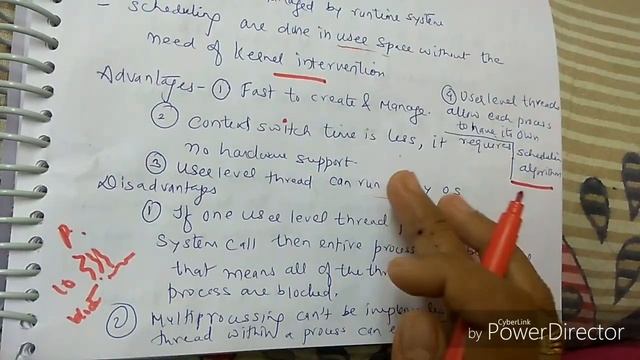 managed by runtime system
- scheduling are done in user space without the
need of Kernel intervention
Advantages - ① Fast to create & Manage.
② Context switch time is less, it requires
no hardware support
③ User level thread can run
④ User level threads
allow each process
to have its own
scheduling
algorithm
Disadvantages
① If one user level thread
System call then entire process
that means all of the
process are blocked.
② Multiprocessing can't be
thread within a process can
P.
CyberLink
by PowerDirector